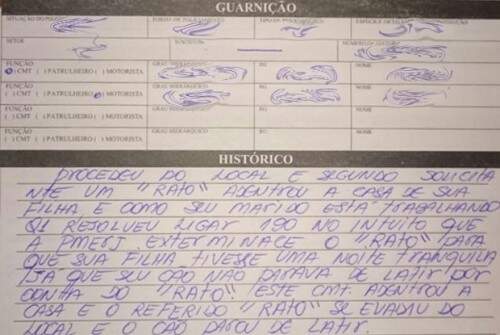 GUARNIÇÃO
SITUAÇÃO DO
SETOR
FUNÇÃO GRAU HIERÁRQUICO RG NOME
( ) CMT ( ) PATRULHEIRO ( ) MOTORISTA
FUNÇÃO GRAU HIERÁRQUICO RG NOME
( ) CMT ( ) PATRULHEIRO ( ) MOTORISTA
FUNÇÃO GRAU HIERÁRQUICO RG NOME
( ) CMT ( ) PATRULHEIRO ( ) MOTORISTA
FUNÇÃO GRAU HIERÁRQUICO RG NOME
( ) CMT ( ) PATRULHEIRO ( ) MOTORISTA
HISTÓRICO
PROCEDEU DO LOCAL E SEGUNDO SOLICITA
NTE UM "RATO" ADENTROU A CASA DE SUA
FILHA E COMO SEU MARIDO ESTÁ TRABALHANDO
RESOLVEU LIGAR 190 NO INTUITO QUE
A PMERJ EXTERMINACE O "RATO" PARA
QUE SUA FILHA TIVESSE UMA NOITE TRANQUILA
JÁ QUE SEU CÃO NÃO PARAVA DE LATIR POR
CONTA DO "RATO". ESTE CMT. ADENTROU A
CASA E O REFERIDO "RATO" SE EVADIU DO
LOCAL E O CÃO PAROU DE LATIR.